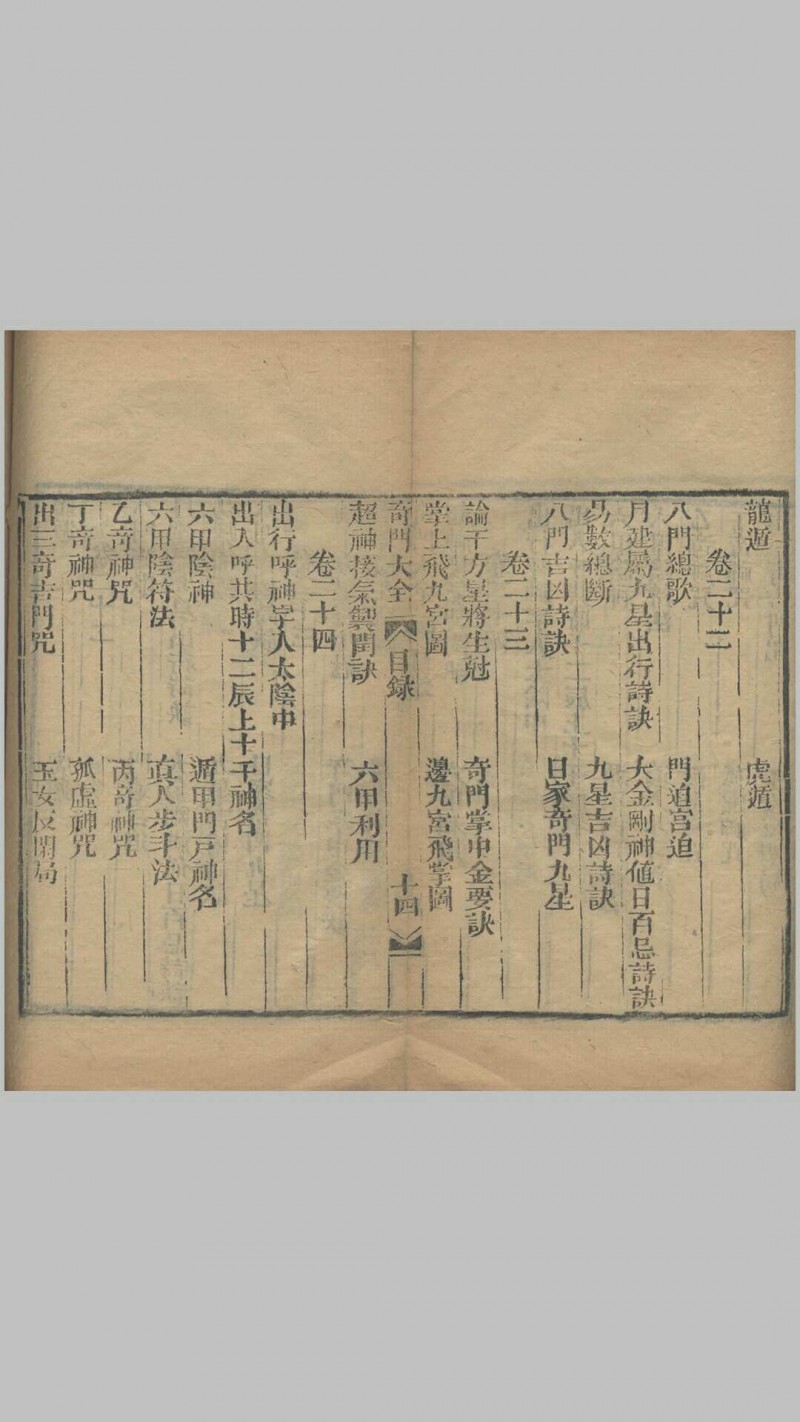 龍遁　虎遁
卷二十二
八門總歌　門迫宮迫
月建屬九星出行詩訣　大金剛神値日百忌詩訣
易數總斷　九星吉凶詩訣
八門吉凶詩訣　日家奇門九星
卷二十三
論干方星將生尅　奇門掌中金要訣
掌上飛九宮圖　邊九宮飛掌圖
奇門大全　目録　十四
超神接氣製閏訣　六甲利用
卷二十四
出行呼神字入太陰中
出入呼其時十二辰上十干神名
六甲陰神　遁甲門戸神名
六甲陰符法　眞人步斗法
乙奇神咒　丙奇神咒
丁奇神咒　孤虛神咒
出三奇吉門咒　玉女反閉局